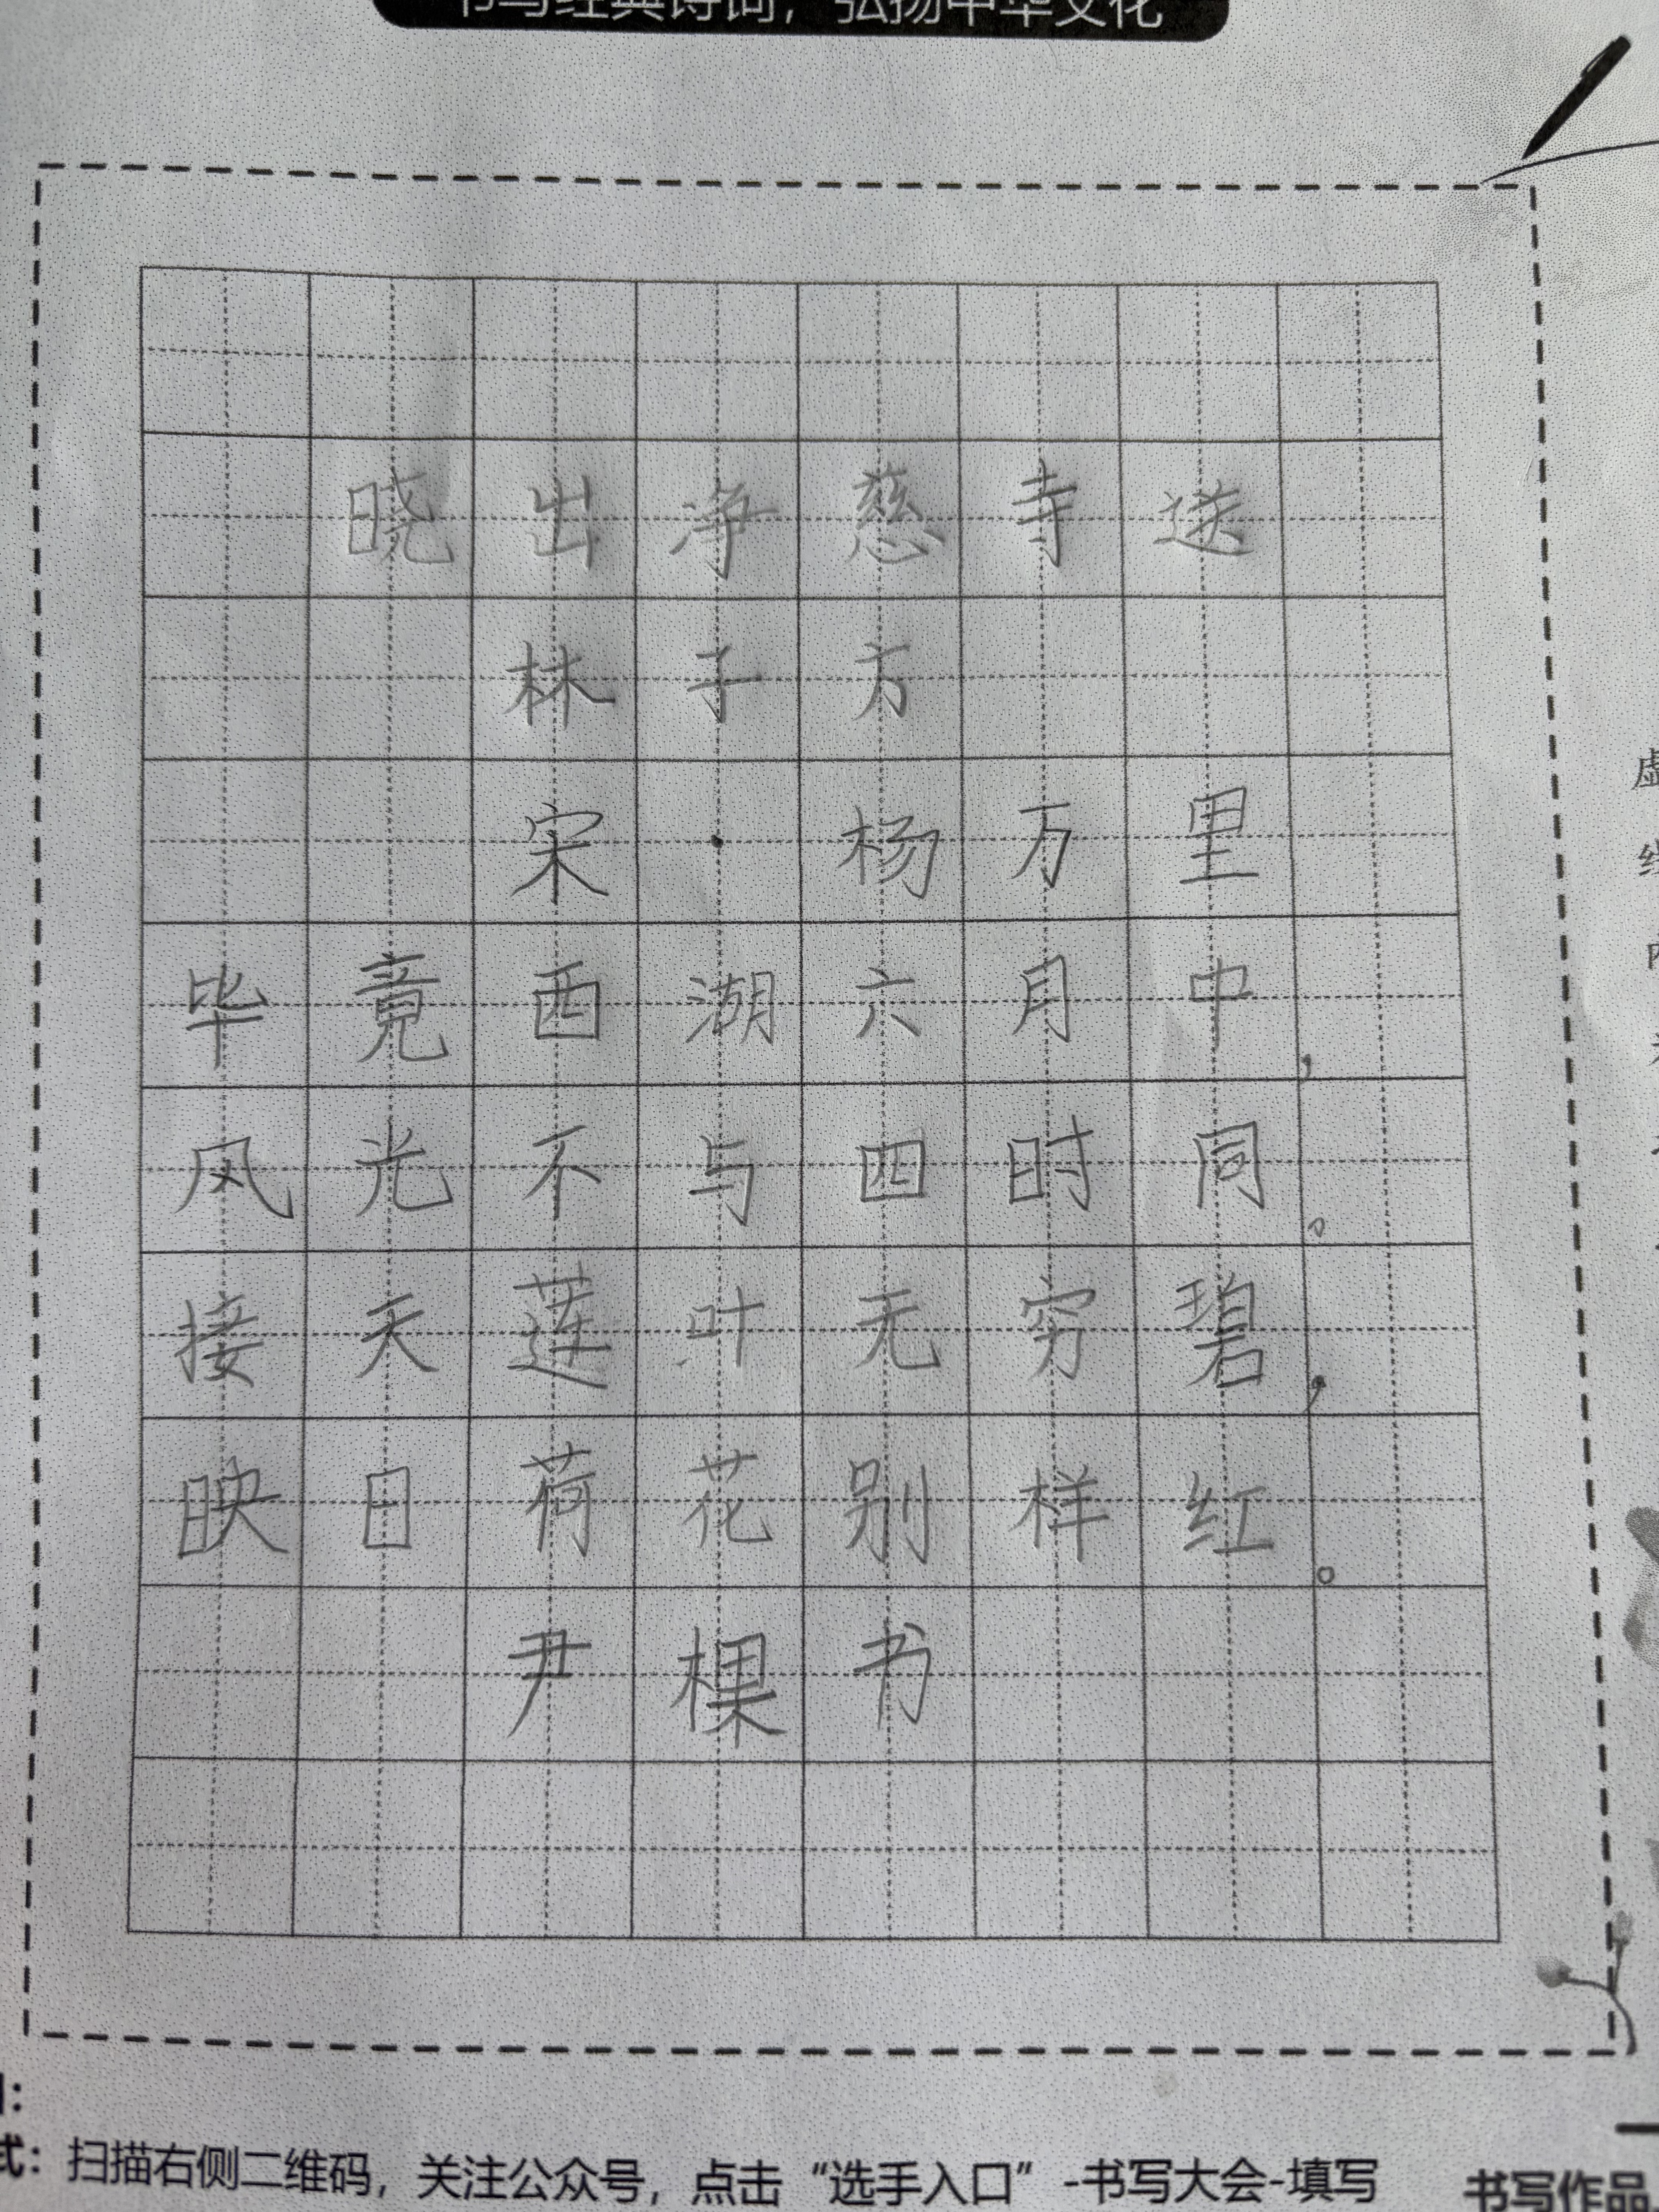 书写经典诗词，弘扬中华文化
晓出净慈寺送
林子方
宋·杨万里
毕竟西湖六月中，
风光不与四时同。
接天莲叶无穷碧，
映日荷花别样红。
尹棵书
式：扫描右侧二维码，关注公众号，点击“选手入口”-书写大会-填写
书写作品